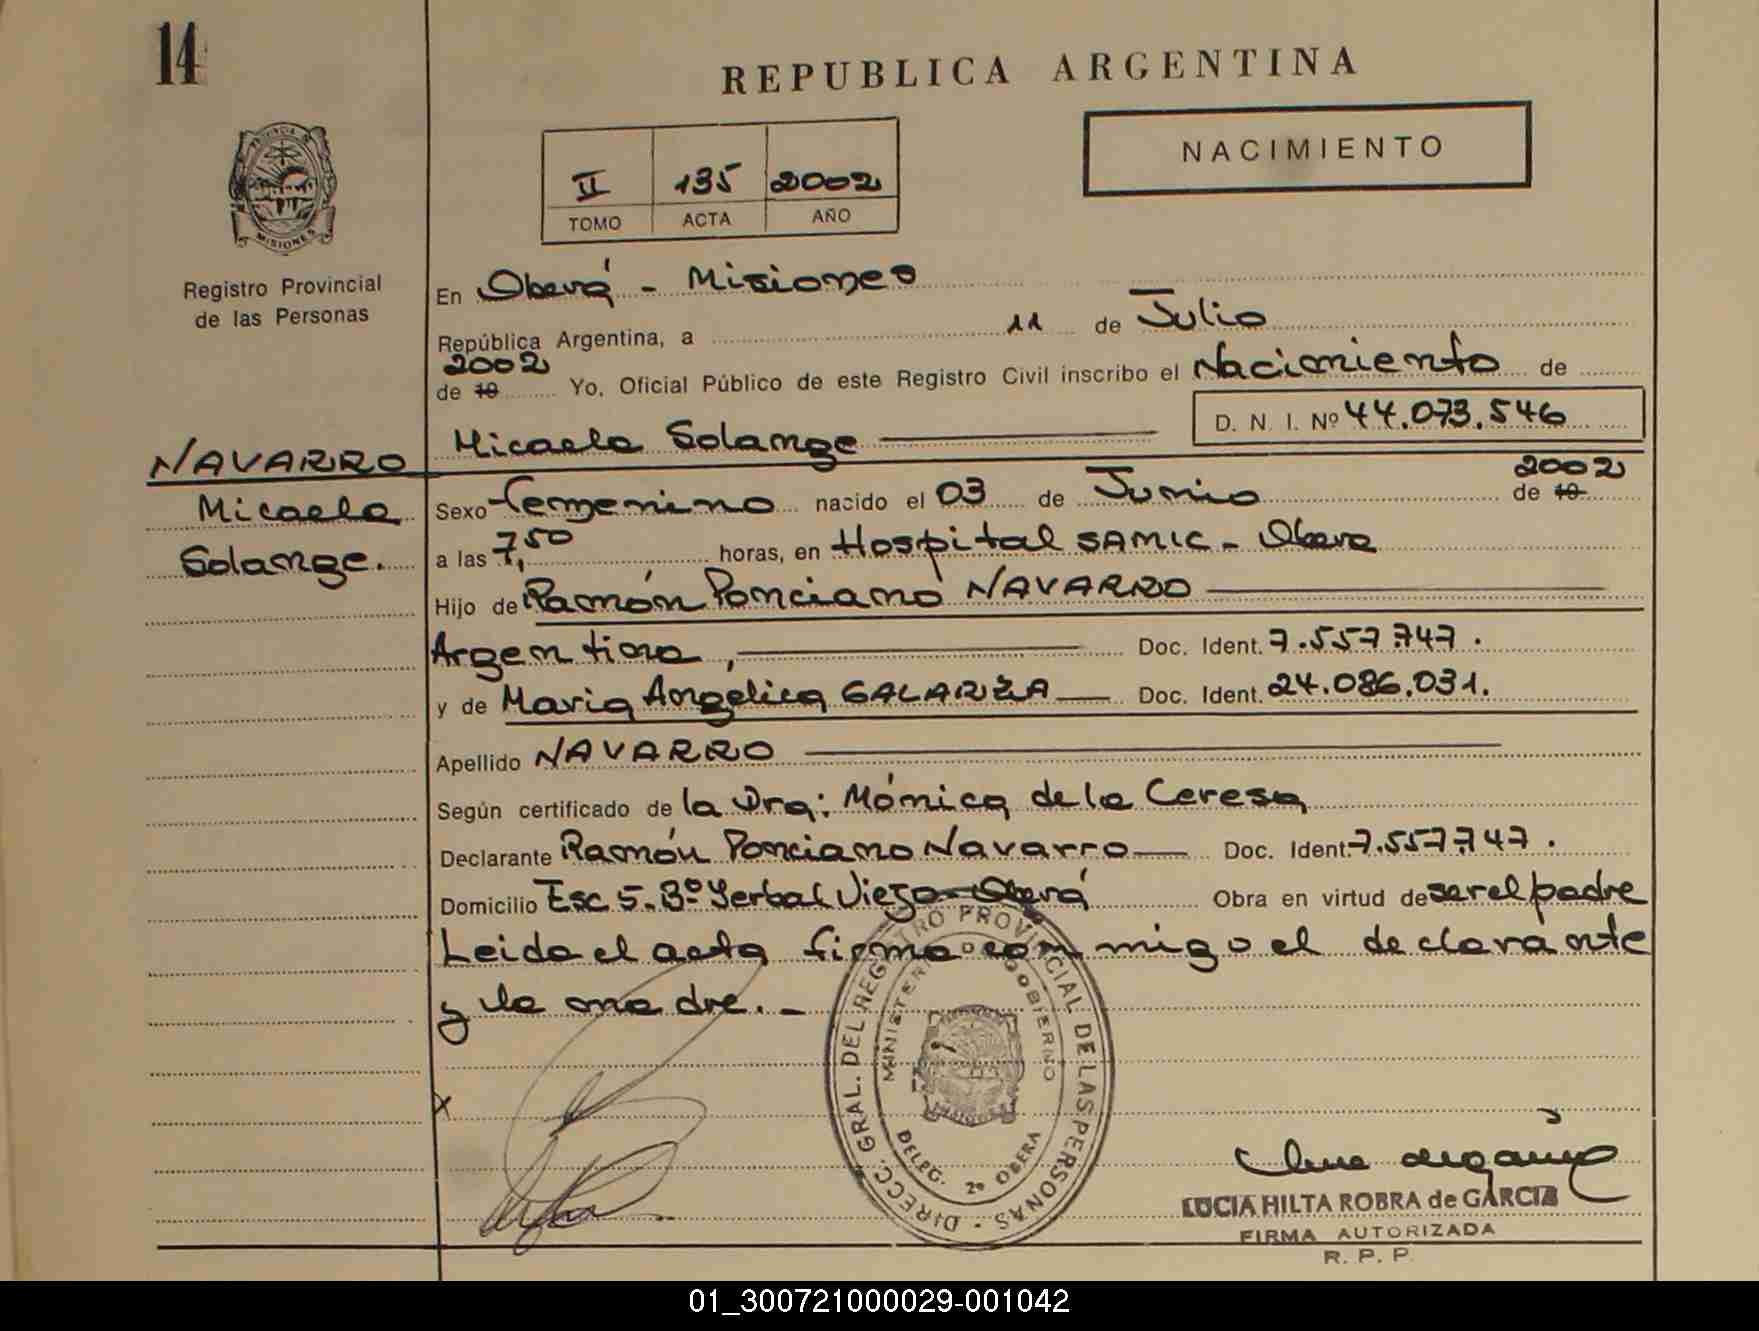 14
REPUBLICA ARGENTINA
NACIMIENTO
II 135 2002
TOMO ACTA AÑO
PROVINCIA DE
MISIONES
Registro Provincial
de las Personas
En Oberá - Misiones
República Argentina, a 11 de Julio
2002
de 19 Yo, Oficial Público de este Registro Civil inscribo el Nacimiento de
D. N. I. Nº 44.073.546
Micaela Solange
NAVARRO
Micaela
Solange.
2002
Sexo femenino nacido el 03 de Junio de 19
a las 7,50 horas, en Hospital SAMIC - Obera
Hijo de Ramón Ponciano NAVARRO
Argentina, Doc. Ident. 7.557.747.
y de Maria Angélica GALARZA Doc. Ident. 24.086.031.
Apellido NAVARRO
Según certificado de la Dra: Mónica de la Ceresa
Declarante Ramón Ponciano Navarro Doc. Ident. 7.557.747.
Domicilio Esc 5. Bº Yerbal Viejo - Oberá Obra en virtud de ser el padre
Leida el acta firma conmigo el declarante
y la madre. -
x
DIRECC. GRAL. DEL REGISTRO PROVINCIAL DE LAS PERSONAS -
MINISTERIO DE GOBIERNO
DELEG. 2º OBERA
LUCIA HILTA ROBRA de GARCIA
FIRMA AUTORIZADA
R. P. P.
01_300721000029-001042